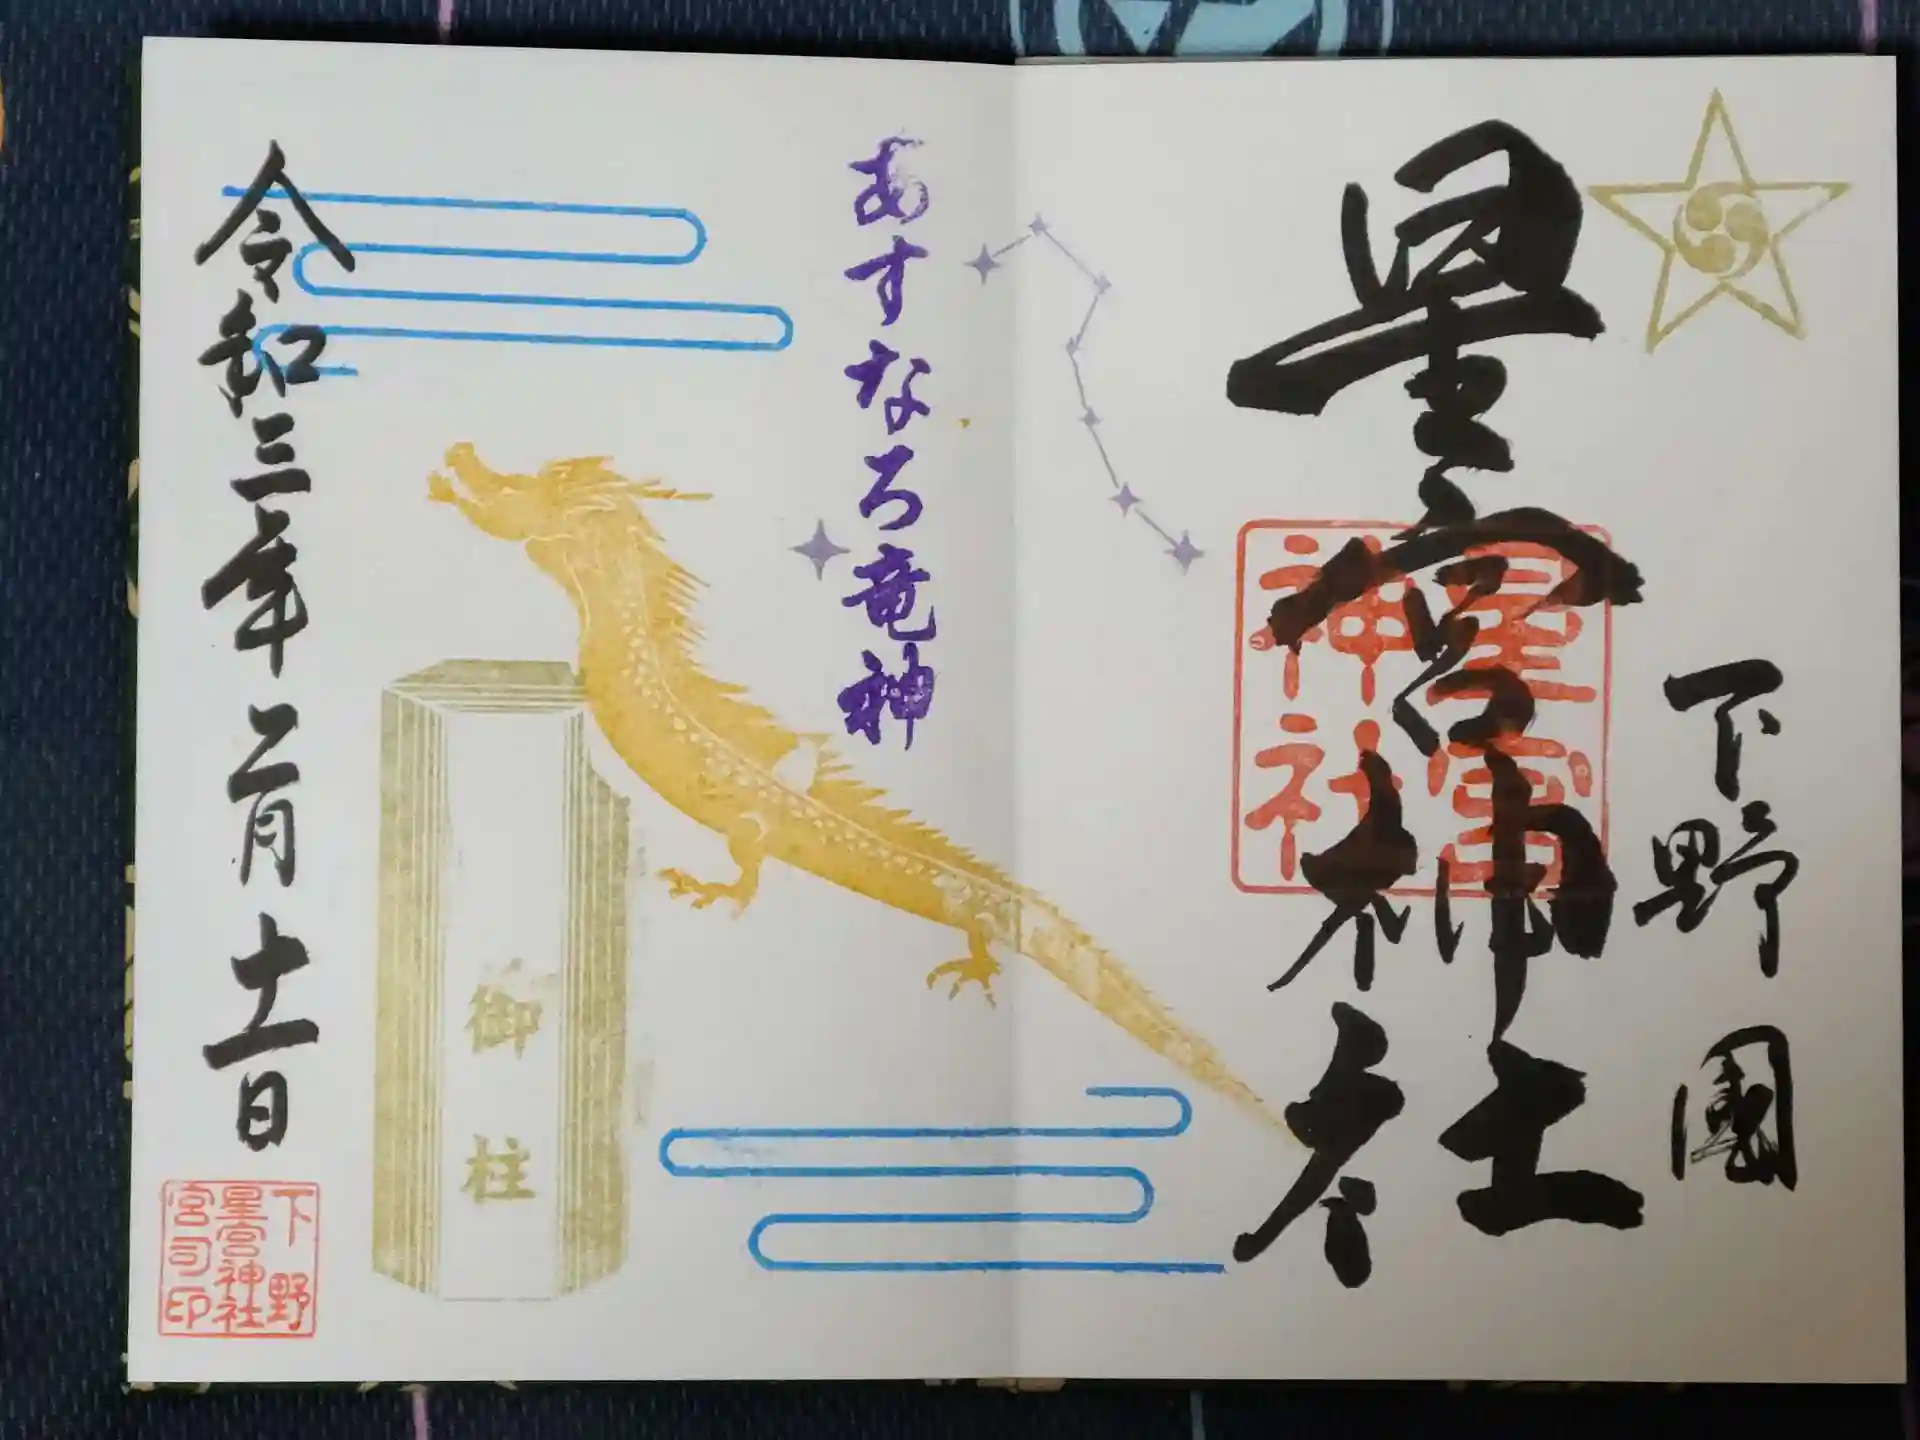 下野國
星宮神社
星宮
神社
あすなろ竜神
御柱
令和三年二月十一日
下野
星宮神社
宮司印